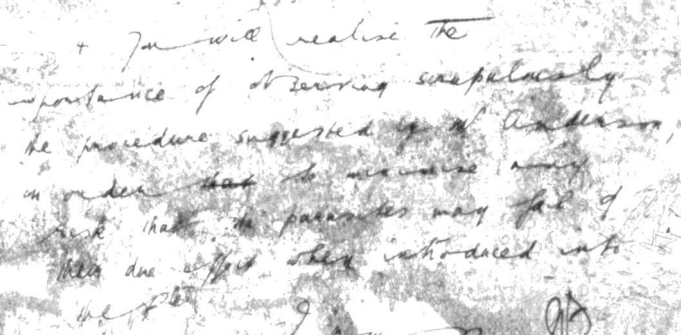 + You will realise the
importance of observing scrupulously
the procedure suggested by Mr Anderson,
in order that to minimise any
risk that the parasites may fail of
their due effect when introduced into
the